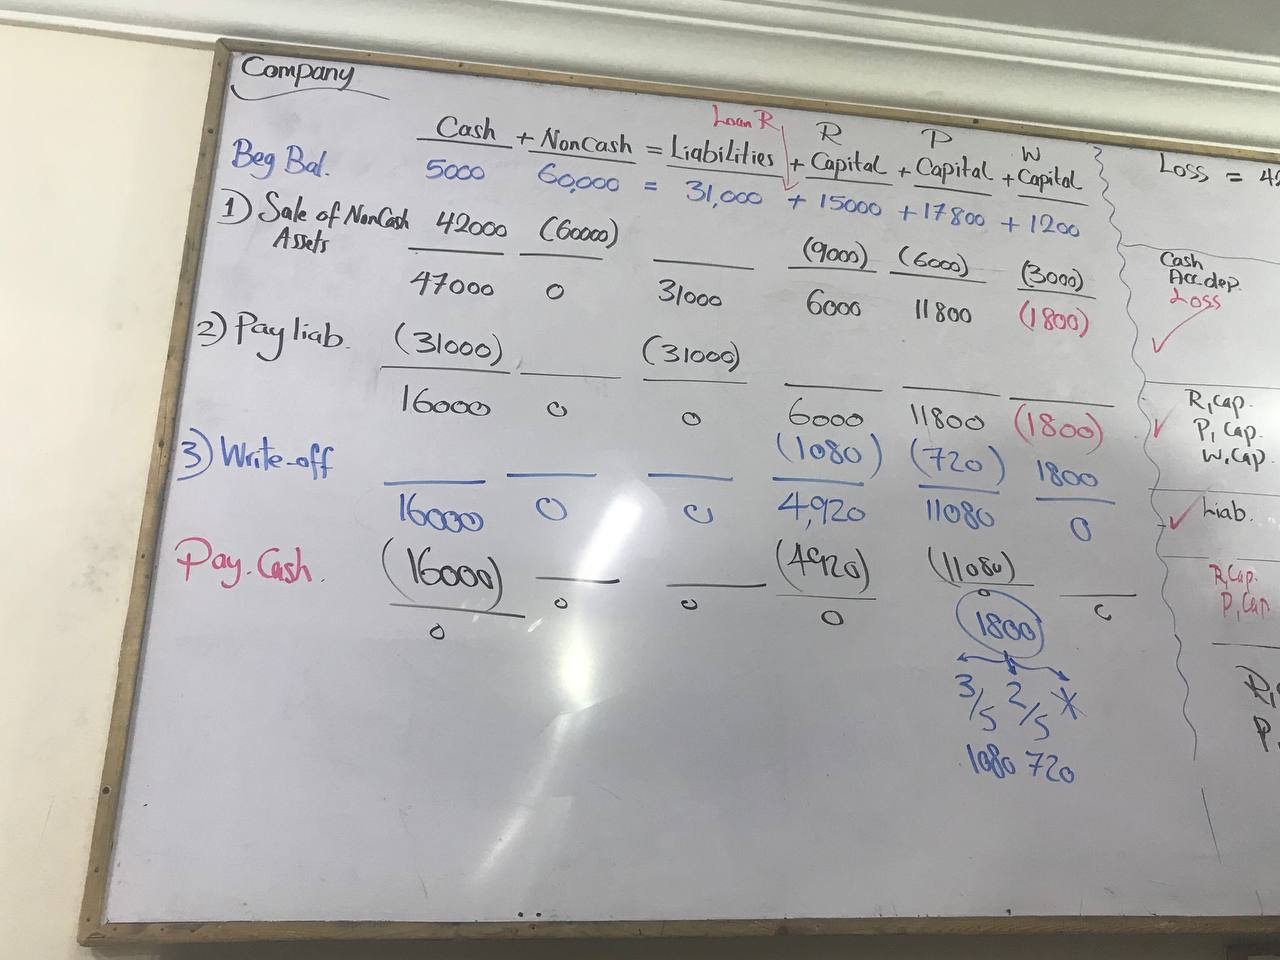 Company
Loan R
R P W
Cash + NonCash = Liabilities + Capital + Capital + Capital
Beg Bal. 5000 60,000 = 31,000 + 15000 + 17800 + 1200
1) Sale of NonCash Assets 42000 (60000) (9000) (6000) (3000)
47000 0 31000 6000 11800 (1800)
2) Pay liab. (31000) (31000)
16000 0 0 6000 11800 (1800)
3) Write-off (1080) (720) 1800
16000 0 0 4,920 11080 0
Pay. Cash. (16000) (4920) (11080)
0 0 0 0 0 0
1800
3/5 2/5 X
1080 720
Loss = 42
Cash
Acc.dep.
Loss
R, Cap.
P, Cap.
W, Cap.
Liab.
R, Cap.
P, Cap.
R,
P,